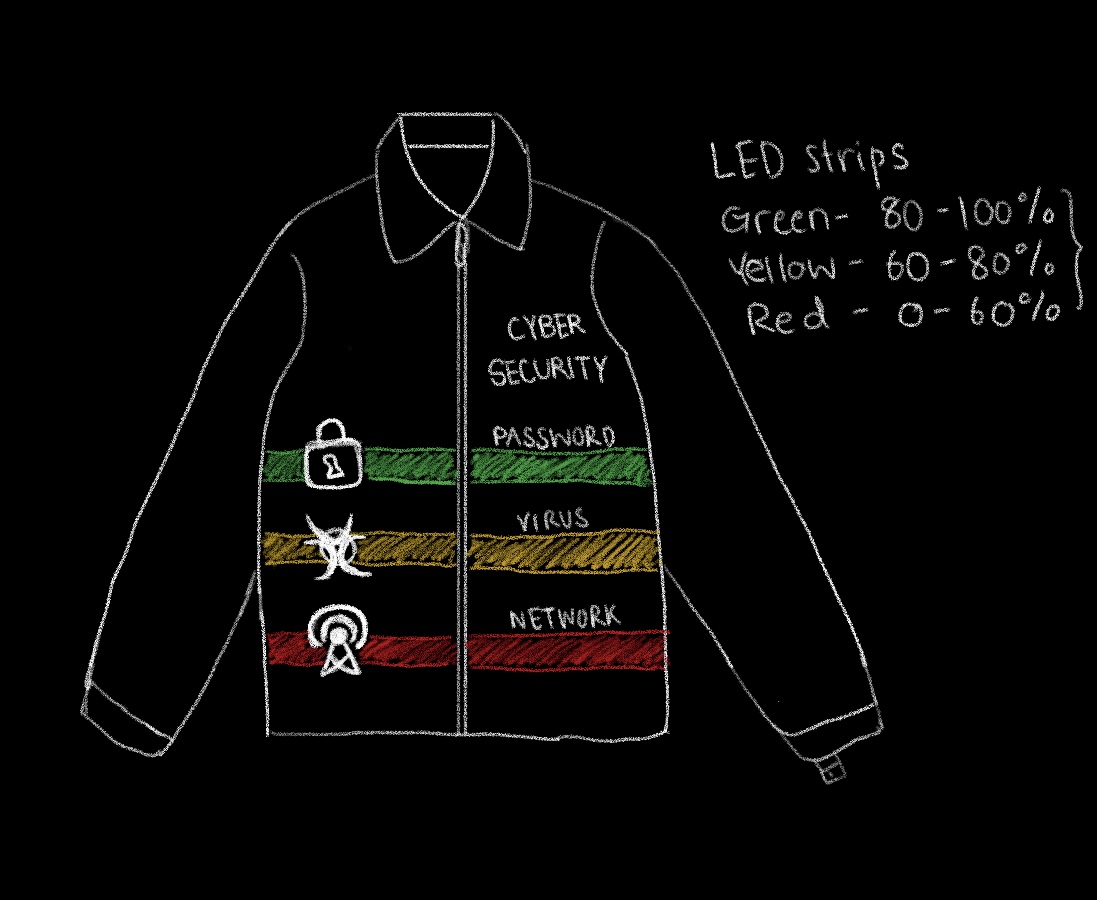 LED strips
Green - 80 - 100%
Yellow - 60 - 80%
Red - 0 - 60%
CYBER
SECURITY
PASSWORD
VIRUS
NETWORK